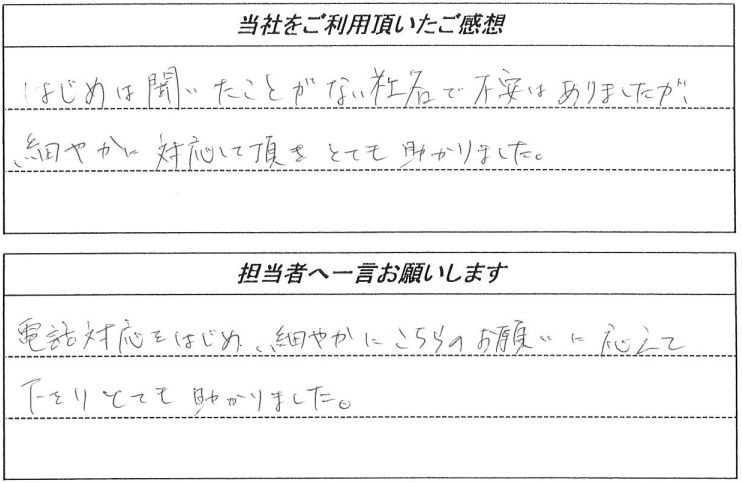 当社をご利用頂いたご感想
はじめは聞いたことがない社名で不安はありましたが、
細やかに対応して頂きとても助かりました。
担当者へ一言お願いします
電話対応をはじめ、細やかにこちらのお願いに応えて
下さりとても助かりました。